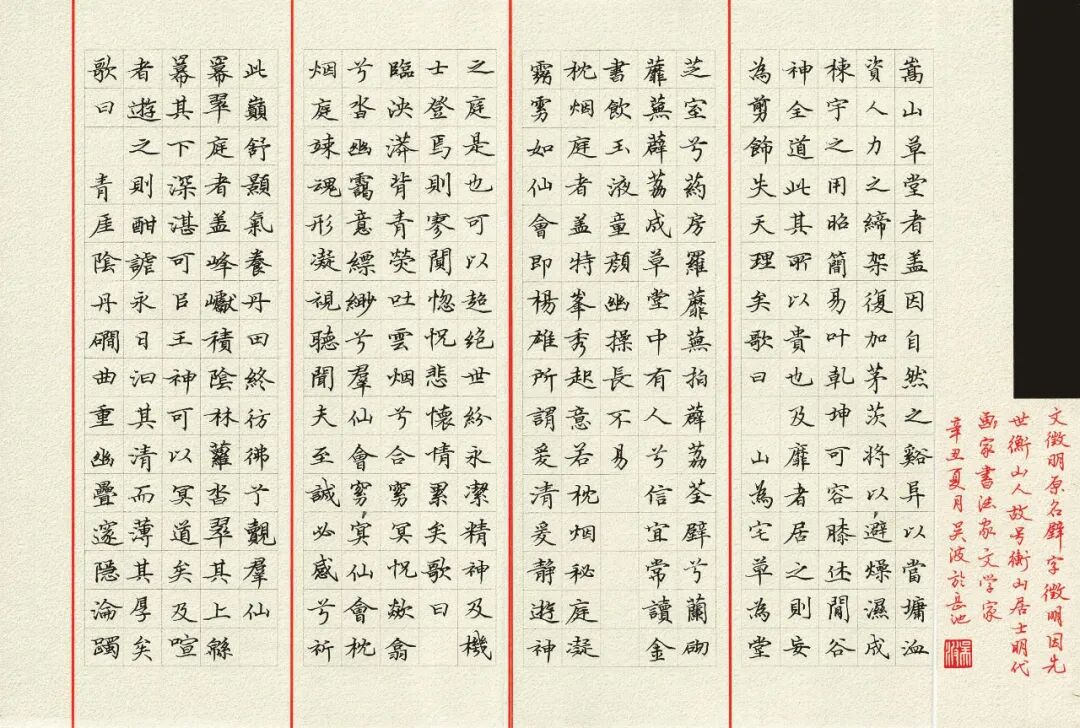 嵩山草堂者盖因自然之谿异以當墉洫
資人力之締架復加茅茨将以避燥濕成
棟宇之用昭簡易叶乾坤可容膝休閒谷
神全道此其所以貴也及靡者居之則妄
為剪飾失天理矣歌曰 山為宅草為堂
芝室兮葯房羅蘼蕪拍薜荔荃壁兮蘭砌
蘼蕪薜荔成草堂中有人兮信宜常讀金
書飲玉液童顔幽操長不易
枕烟庭者盖特峯秀起意若枕烟秘庭凝
霧雾如仙會即楊雄所謂爰清爰静遊神
之庭是也可以超绝世紛永潔精神及機
士登焉則寥闃惚怳悲懷情累矣歌曰
臨泱漭背青熒吐雲烟兮合窈冥怳欻翕
兮沓幽靄意縹緲兮羣仙會窈冥仙會枕
烟庭竦魂形凝視聽聞夫至誠必感兮祈
此巔舒顥氣養丹田終彷彿兮覿羣仙
羃翠庭者盖峰巘積陰林蘿沓翠其上緜
羃其下深湛可㠯王神可以冥道矣及喧
者遊之則酣謔永日汩其清而薄其厚矣
歌曰 青厓陰丹磵曲重幽疊邃隱淪躅
文徵明原名壁字徵明因先
世衡山人故号衡山居士明代
画家書法家文学家
辛丑夏月吴波於岳池